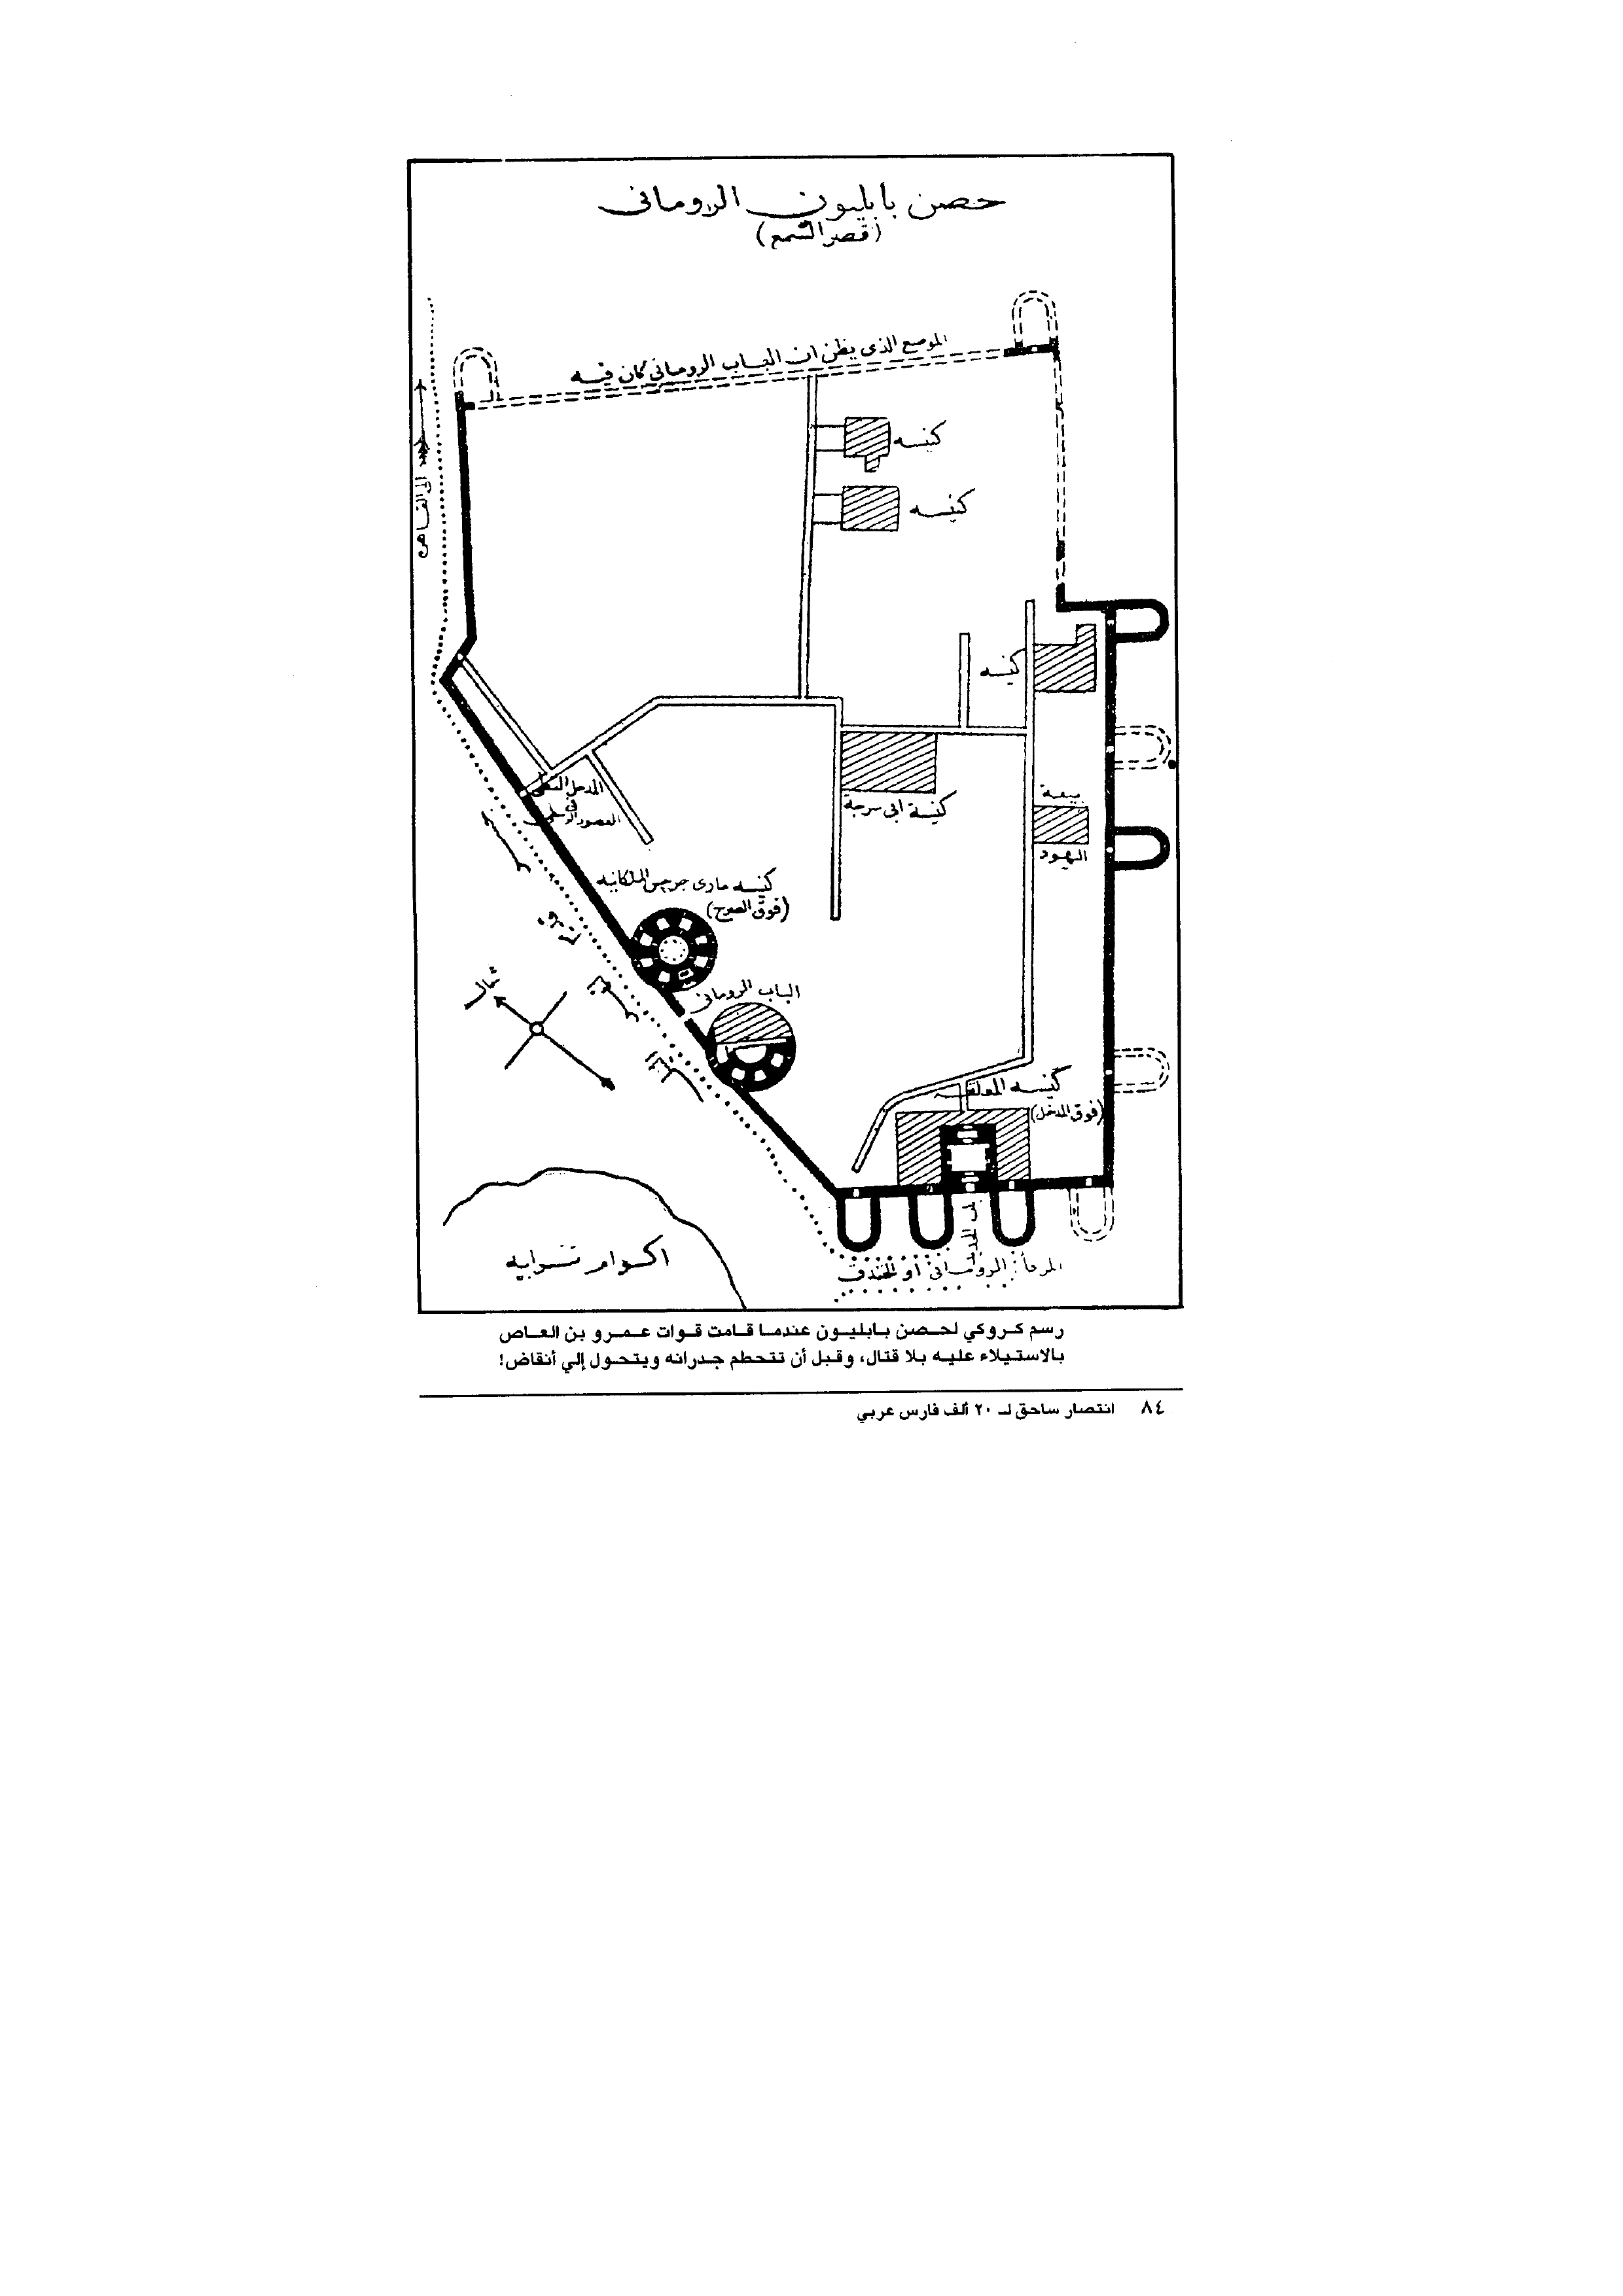 حصن بابليون الروماني
(قصر الشمع)
الموضع الذى يظن ان الباب الرومانى كان فيه
كنيسه
كنيسه
الى القاهره
كنيسه
المدخل
فى
العصور
كنيسة ابى سرجة
بيعة
اليهود
كنيسه مارى جرجس الملكانيه
(فوق الصرح)
الباب الرومانى
شمال
كنيسه المعلقه
(فوق المدخل)
باب الحديد
الرومانى أو الخندق
اكوام ترابيه
رسم كروكي لحصن بابليون عندما قامت قوات عمرو بن العاص
بالاستيلاء عليه بلا قتال، وقبل أن تتحطم جدرانه ويتحول إلي أنقاض!
٨٤ انتصار ساحق لـ ٢٠ ألف فارس عربي